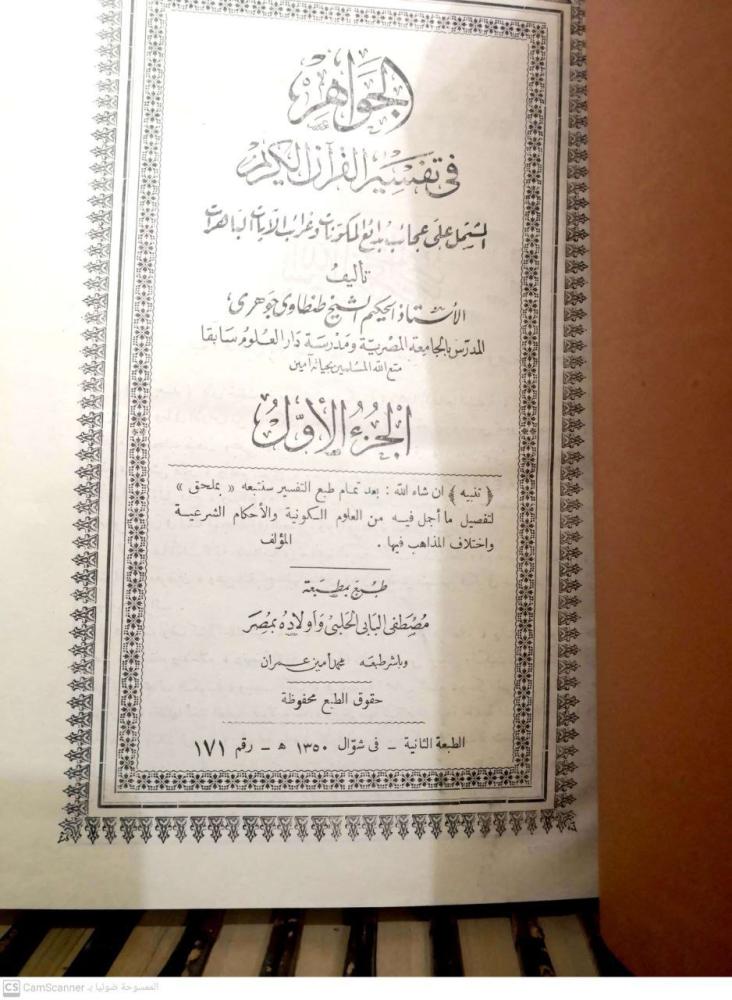 الجواهر
في تفسير القرآن الكريم
المشتمل على عجائب بدائع المكونات وغرائب الآيات الباهرات
تأليف
الأستاذ الحكيم الشيخ طنطاوى جوهرى
المدرس بالجامعة المصرية ومدرسة دار العلوم سابقا
متع الله المسلمين بحياته آمين
الجزء الأول
﴿ تنبيه ﴾ ان شاء الله : بعد تمام طبع التفسير سنتبعه « بملحق »
لتفصيل ما أجمل فيه من العلوم الكونية والأحكام الشرعية
واختلاف المذاهب فيها . المؤلف
طبع بمطبعة
مصطفى البابى الحلبى وأولاده بمصر
وباشر طبعه محمد أمين عمران
حقوق الطبع محفوظة
الطبعة الثانية - فى شوال ١٣٥٠ ه - رقم ١٧١
CS CamScanner الممسوحة ضوئيا بـ